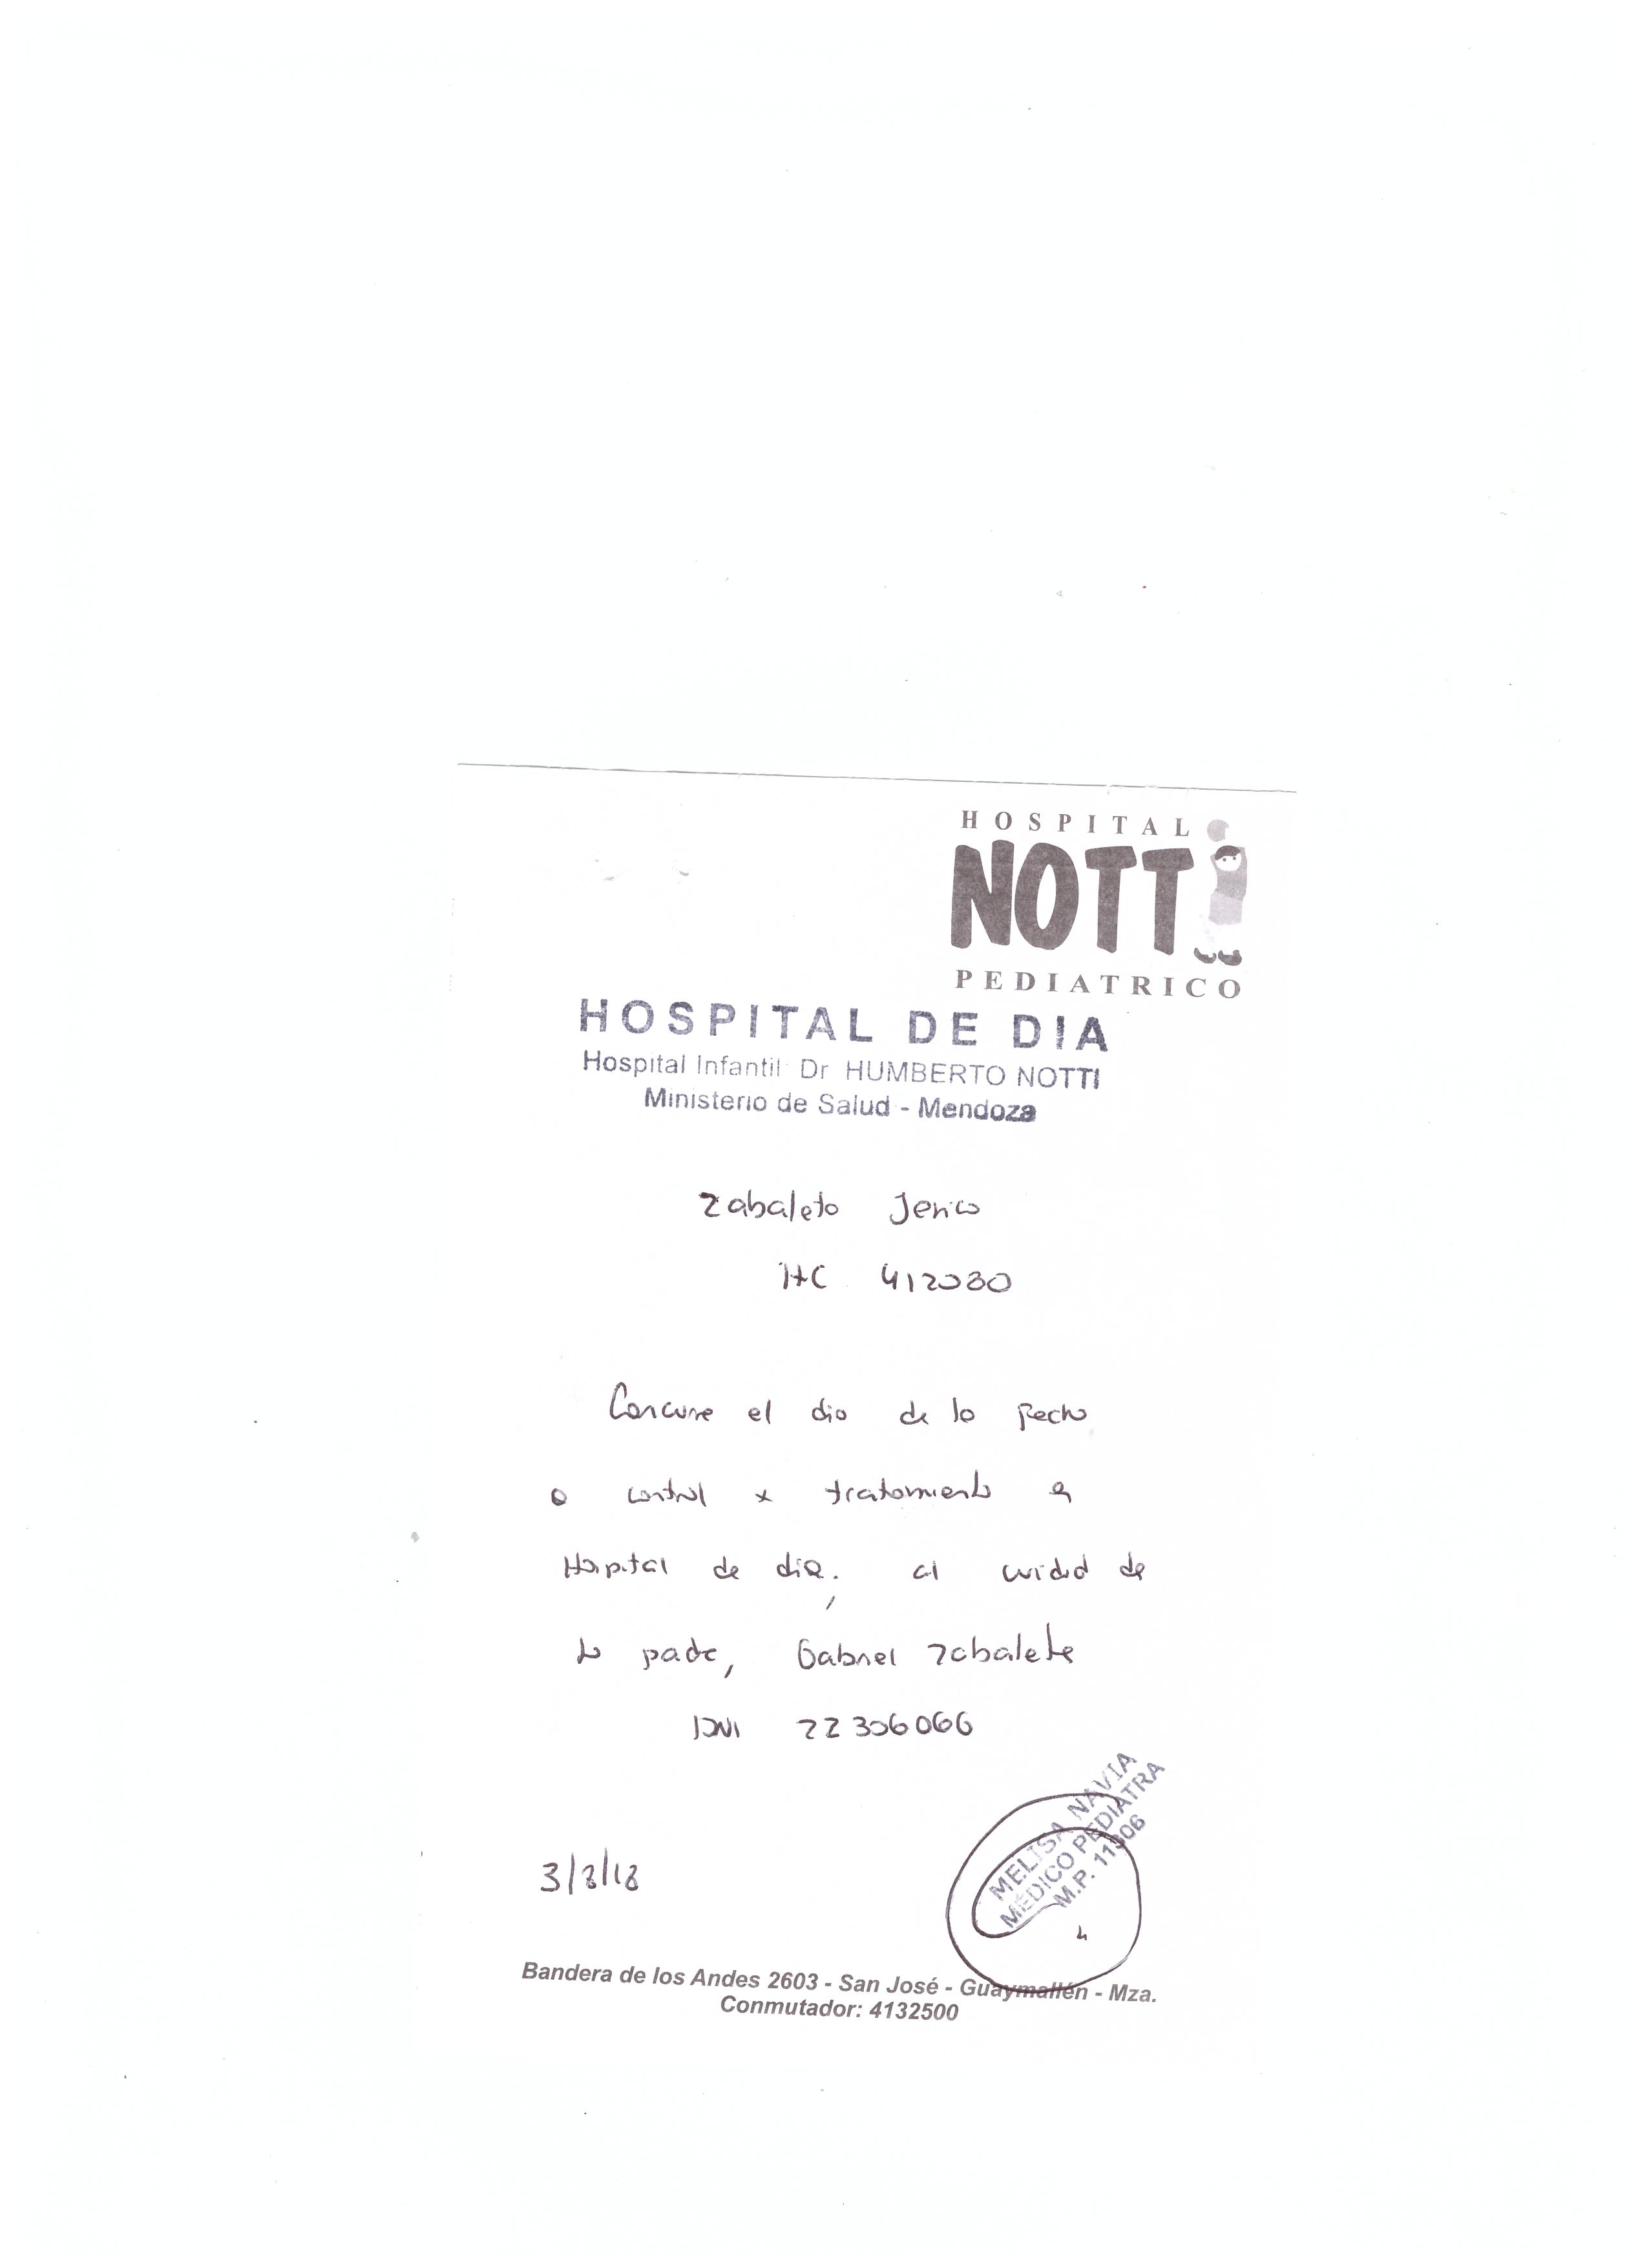 HOSPITAL
NOTTI
PEDIATRICO
HOSPITAL DE DIA
Hospital Infantil Dr HUMBERTO NOTTI
Ministerio de Salud - Mendoza
Zabaleta Jerico
HC 412080
Concurre el dia de la fecha
a control x tratamiento en
Hospital de dia, al cuidado de
su padre, Gabriel Zabaleta
DNI 22306066
MELISA NAVIA
MÉDICO PEDIATRA
M.P. 11306
3/8/18
Bandera de los Andes 2603 - San José - Guaymallén - Mza.
Conmutador: 4132500